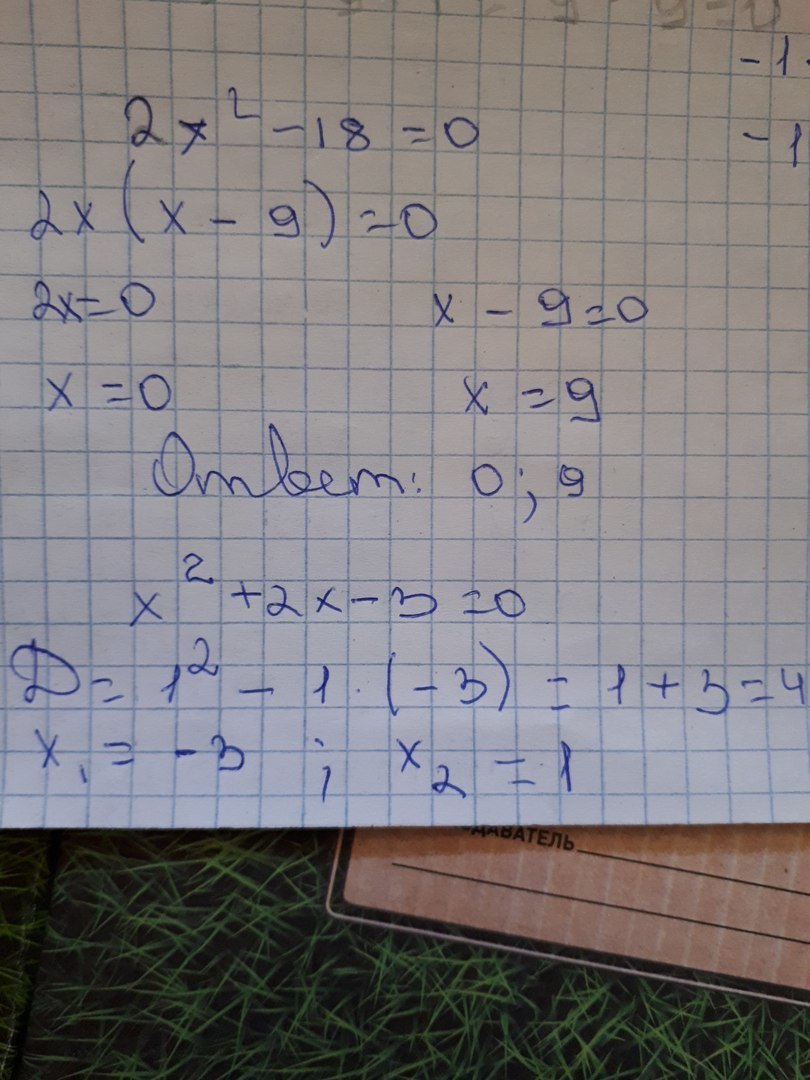 -1
2x² - 18 = 0
-1
2x(x - 9) = 0
2x = 0 x - 9 = 0
x = 0 x = 9
Ответ: 0; 9
x² + 2x - 3 = 0
D = 1² - 1 · (-3) = 1 + 3 = 4
x₁ = -3 ; x₂ = 1
ДАВАТЕЛЬ